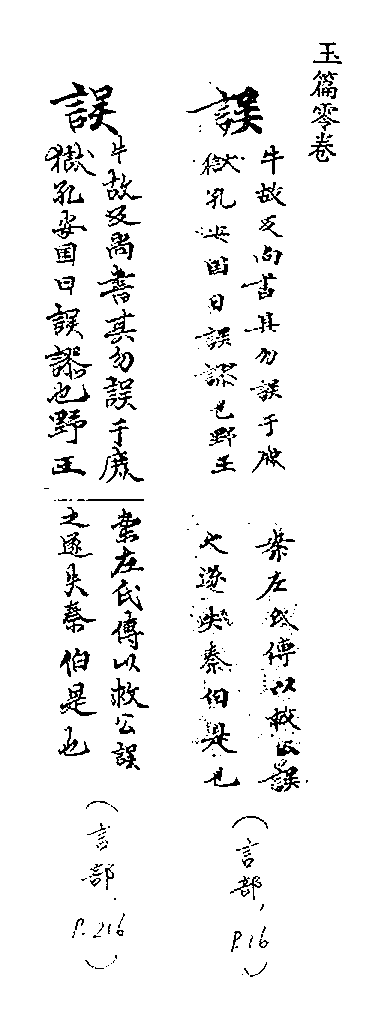 玉篇零卷
誤
牛故反尚書其勿誤于庶
獄孔安囯曰誤謬也野王
案左氏傳以救公誤
之遂失秦伯是也
(言部, P.16)
誤
牛故反尚書其勿誤于庶
獄孔安囯曰誤謬也野王
案左氏傳以救公誤
之遂失秦伯是也
(言部. P.216)